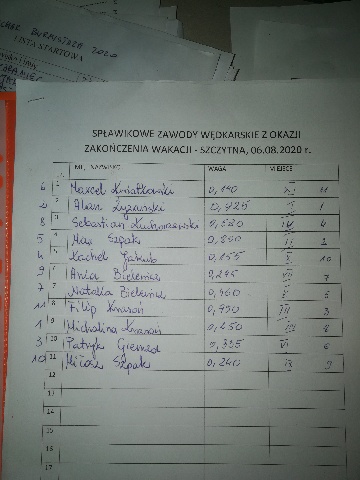 PUCHAR BURMISTRZA 2020
LISTA STARTOWA
SPŁAWIKOWE ZAWODY WĘDKARSKIE Z OKAZJI
ZAKOŃCZENIA WAKACJI - SZCZYTNA, 06.08.2020 r.
IMIĘ, NAZWISKO WAGA MIEJSCE
6 1 Marcel Kwiatkowski 0,140 XI 11
2 2 Alan 0,925 I 1
8 3 Sebastian 0,580 IV 4
5 4 Max Szpak II 2
4 5 Kachel Jakub 0,155 X 10
9 6 Ania Bielenica 0,245 VII 7
7 7 Natalia Bielenica 0,360 V 5
11 8 Filip Krasoń III 3
1 9 Michalina Krasoń 0,450 8
3 10 Patryk 0,335 VI 6
10 11 Miłosz Szpak 0,240 IX 9
12
13
14
15
16
17